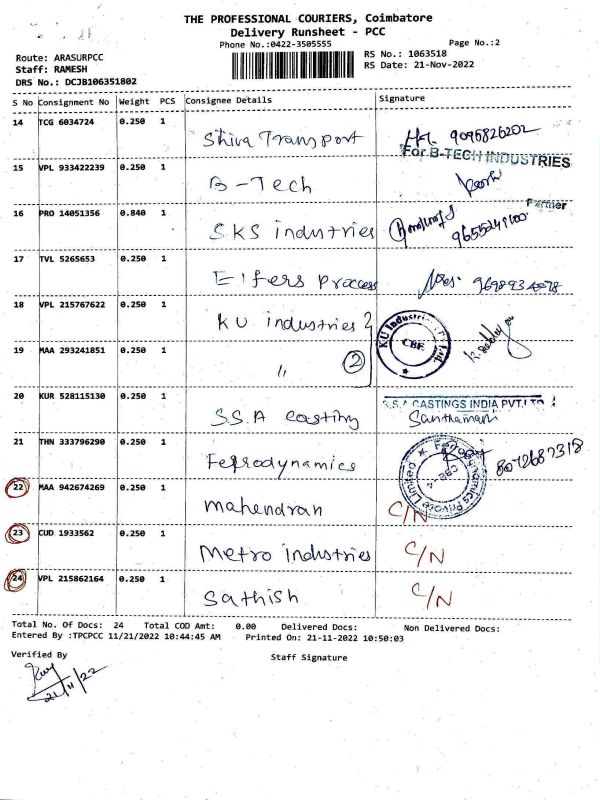 THE PROFESSIONAL COURIERS, Coimbatore
Delivery Runsheet - PCC
Phone No.:0422-3505555
Page No.:2
Route: ARASURPCC
RS No.: 1063518
Staff: RAMESH
RS Date: 21-Nov-2022
DRS No.: DCJB106351802
S No Consignment No Weight PCS Consignee Details Signature
14 TCG 6034724 0.250 1 Shiva Transport 9095826202
For B-TECH INDUSTRIES
15 VPL 933422239 0.250 1 B-Tech
Partner
16 PRO 14051356 0.840 1 SKS industries
17 TVL 5265653 0.250 1 Eifers process
18 VPL 215767622 0.250 1 KU industries
KU Industries CBE
19 MAA 293241851 0.250 1 " 2
20 KUR 528115130 0.250 1 S.S.A casting
S.S.A CASTINGS INDIA PVT.LTD
21 THN 333796290 0.250 1 Ferrodynamics 8072687318
22 MAA 942674269 0.250 1 Mahendran C/N
23 CUD 1933562 0.250 1 Metro industries C/N
24 VPL 215862164 0.250 1 Sathish C/N
Total No. Of Docs: 24 Total COD Amt: 0.00 Delivered Docs: Non Delivered Docs:
Entered By :TPCPCC 11/21/2022 10:44:45 AM Printed On: 21-11-2022 10:50:03
Verified By
Staff Signature
21/11/22